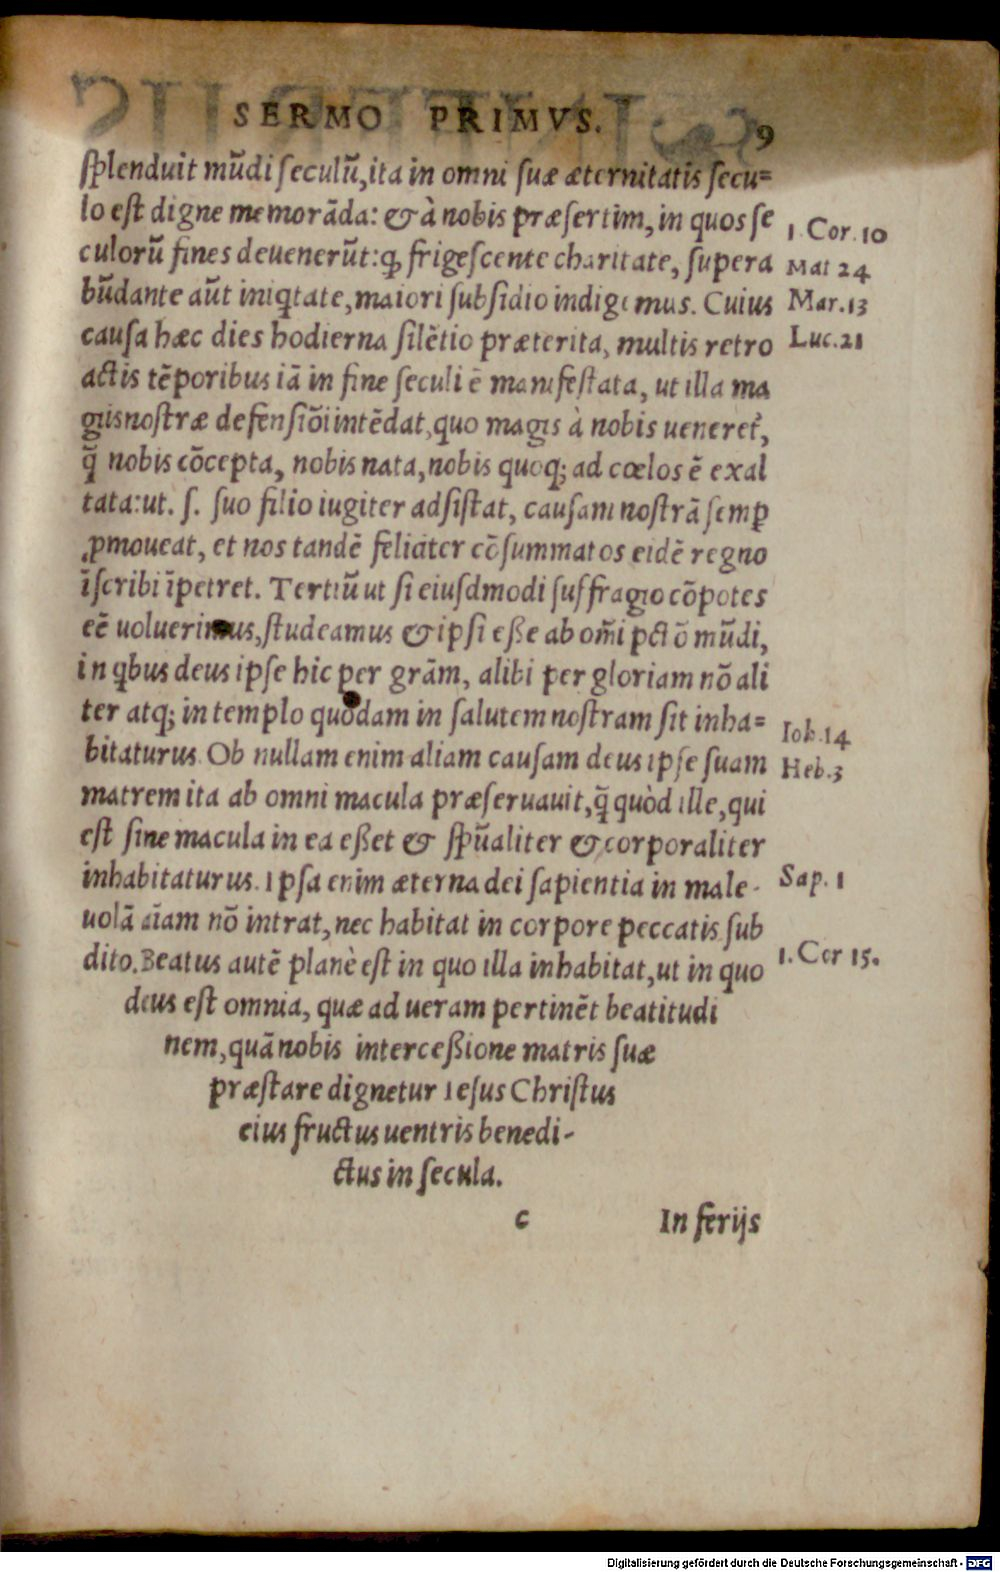 SERMO PRIMVS. 9
splenduit mũdi seculũ, ita in omni suæ æternitatis secu=
lo est digne memorãda: & à nobis præsertim, in quos se
culorũ fines deuenerũt: ꝙ frigescente charitate, supera
bũdante aũt iniq̃tate, maiori subsidio indigemus. Cuius
causa hæc dies hodierna silẽtio præterita, multis retro
actis tẽporibus iã in fine seculi ẽ manifestata, ut illa ma
gis nostræ defensiõi intẽdat, quo magis à nobis ueneret̃,
q̃ nobis cõcepta, nobis nata, nobis quoq; ad cœlos ẽ exal
tata: ut. s. suo filio iugiter adsistat, causam nostrã semꝑ
ꝓmoueat, et nos tandẽ feliciter cõsummatos eidẽ regno
ĩscribi ĩpetret. Tertiũ ut si eiusdmodi suffragio cõpotes
eẽ uoluerimus, studeamus & ipsi eße ab om̃i pctõ mũdi,
in q̃bus deus ipse hic per grãm, alibi per gloriam nõ ali
ter atq; in templo quodam in salutem nostram sit inha=
bitaturus. Ob nullam enim aliam causam deus ipse suam
matrem ita ab omni macula præseruauit, q̃ quòd ille, qui
est sine macula in ea eßet & sp̃ualiter & corporaliter
inhabitaturus. Ipsa enim æterna dei sapientia in male-
uolã aĩam nõ intrat, nec habitat in corpore peccatis sub
dito. Beatus autẽ planè est in quo illa inhabitat, ut in quo
deus est omnia, quæ ad ueram pertinẽt beatitudi
nem, quã nobis interceßione matris suæ
præstare dignetur Iesus Christus
eius fructus uentris benedi-
ctus in secula.
c In ferijs
1. Cor. 10
Mat 24
Mar. 13
Luc. 21
Ioh. 14
Heb. 3
Sap. 1
1. Cor 15.
Digitalisierung gefördert durch die Deutsche Forschungsgemeinschaft - DFG